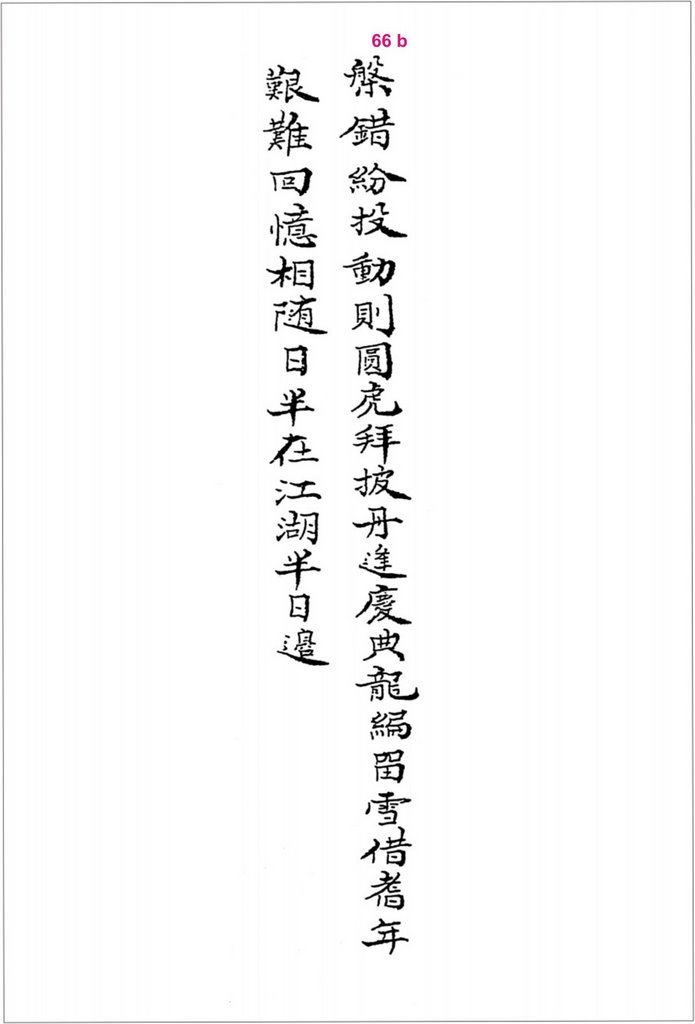 66 b
槃錯紛投動則圓虎拜披丹逢慶典龍編留雪借耆年
艱難回憶相随日半在江湖半日邊